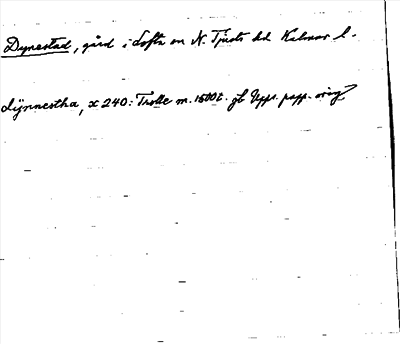 Dynestad, gård i Lofta sn N. Tjusts hd Kalmar l.
dynnestha, x 240: Trolle m. 1500t. jb Upps. papp. orig